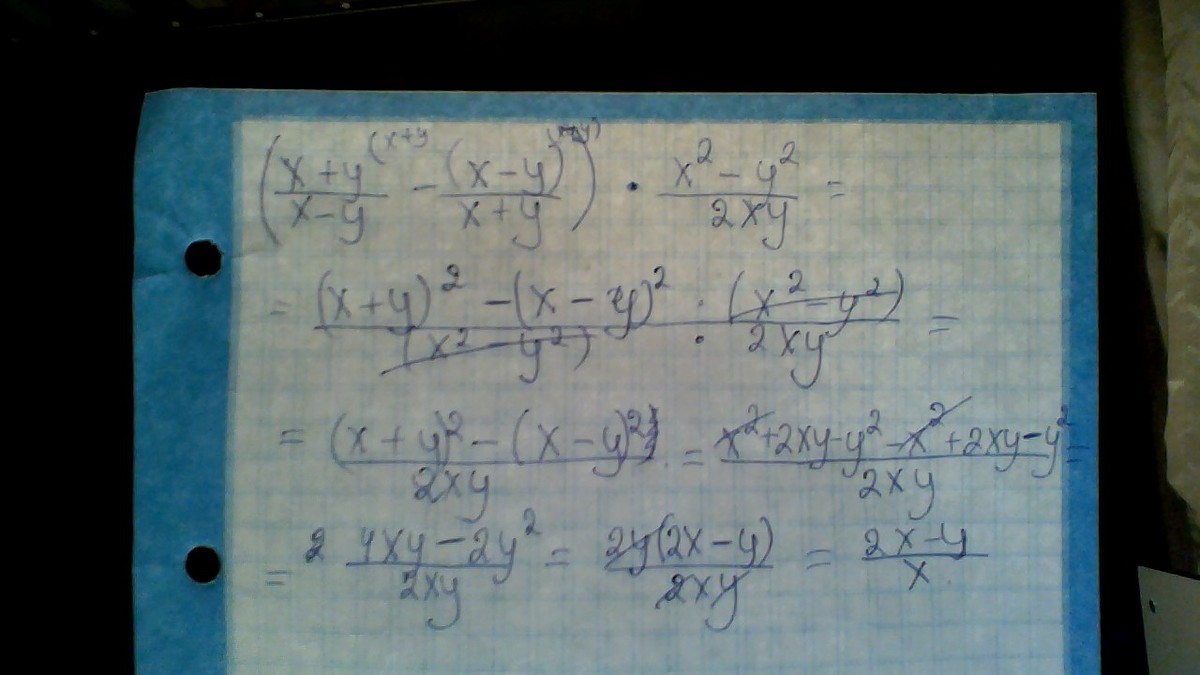 ((x+y)/(x-y) (x+y - (x-y)/(x+y) (x-y)) · (x² - y²)/(2xy) =
= ((x+y)² - (x-y)²)/((x² - y²)) · ((x² - y²))/(2xy) =
= ((x+y)² - (x-y)²)/(2xy) = (x²+2xy-y²-x²+2xy-y²)/(2xy) =
= 2 (4xy-2y²)/(2xy) = (2y(2x-y))/(2xy) = (2x-y)/x